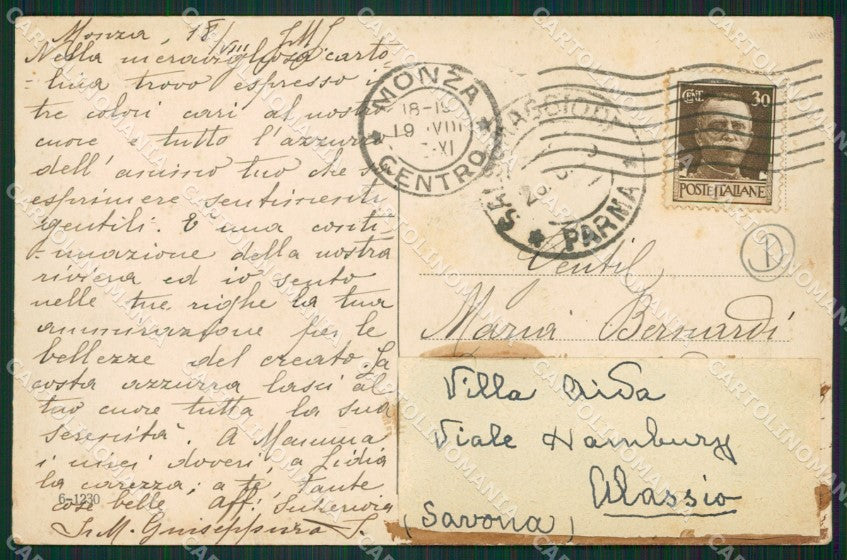 Monza, 18/VIII
Nella meravigliosa carto-
lina trovo espresso i
tre colori cari al nostro
cuore e tutto l'azzurro
dell'animo tuo che sa
esprimere sentimenti
gentili. È una conti-
-nuazione della nostra
riviera ed io sento
nelle tue righe la tua
ammirazione per le
bellezze del creato. La
costa azzurra lasci al
tuo cuore tutta la sua
serenità. A Mamma
i miei doveri, a Lidia
la carezza; a te, tante
cose belle. Aff.
6-1230
MONZA
18-19
19 VIII
XI
CENTRO
SALSOMAGGIORE
PARMA
CENT. 30
POSTE ITALIANE
Gentil
Maria Bernardi
Villa Aida
Viale Hambury
Alassio
(Savona)
CARTOLINOMANIA